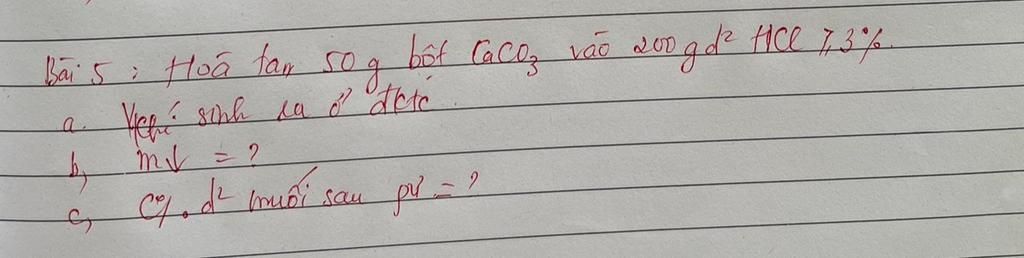 Bài 5 : Hoà tan 50 g bột CaCO₃ vào 200 g d² HCl 7,3%.
a. Vkhí sinh ra ở đktc.
b, m↓ = ?
c, C%. d² muối sau pứ = ?